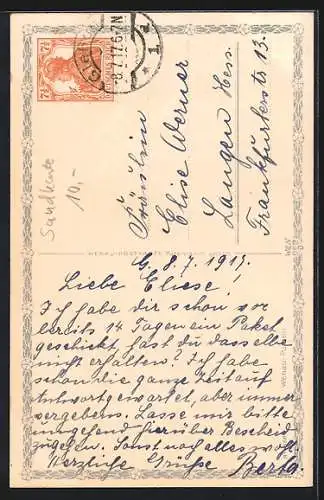 Fräulein
Elise Werner
Langen Hess.
Frankfurterstr 13.
G. 8.7.1917.
Liebe Eliese!
Ich habe dir schon vor
bereits 14 Tagen ein Paket
geschickt hast du dasselbe
nicht erhalten? Ich habe
schon die ganze Zeit auf
Antwort gewartet, aber immer
vergebens. Lasse mir bitte
umgehend hierüber Bescheid
zugehen. Sonst noch alles wohl.
Herzliche Grüsse Berta
7½ 7½
8.7.17.6-7N
1
Sandkarte
10,-